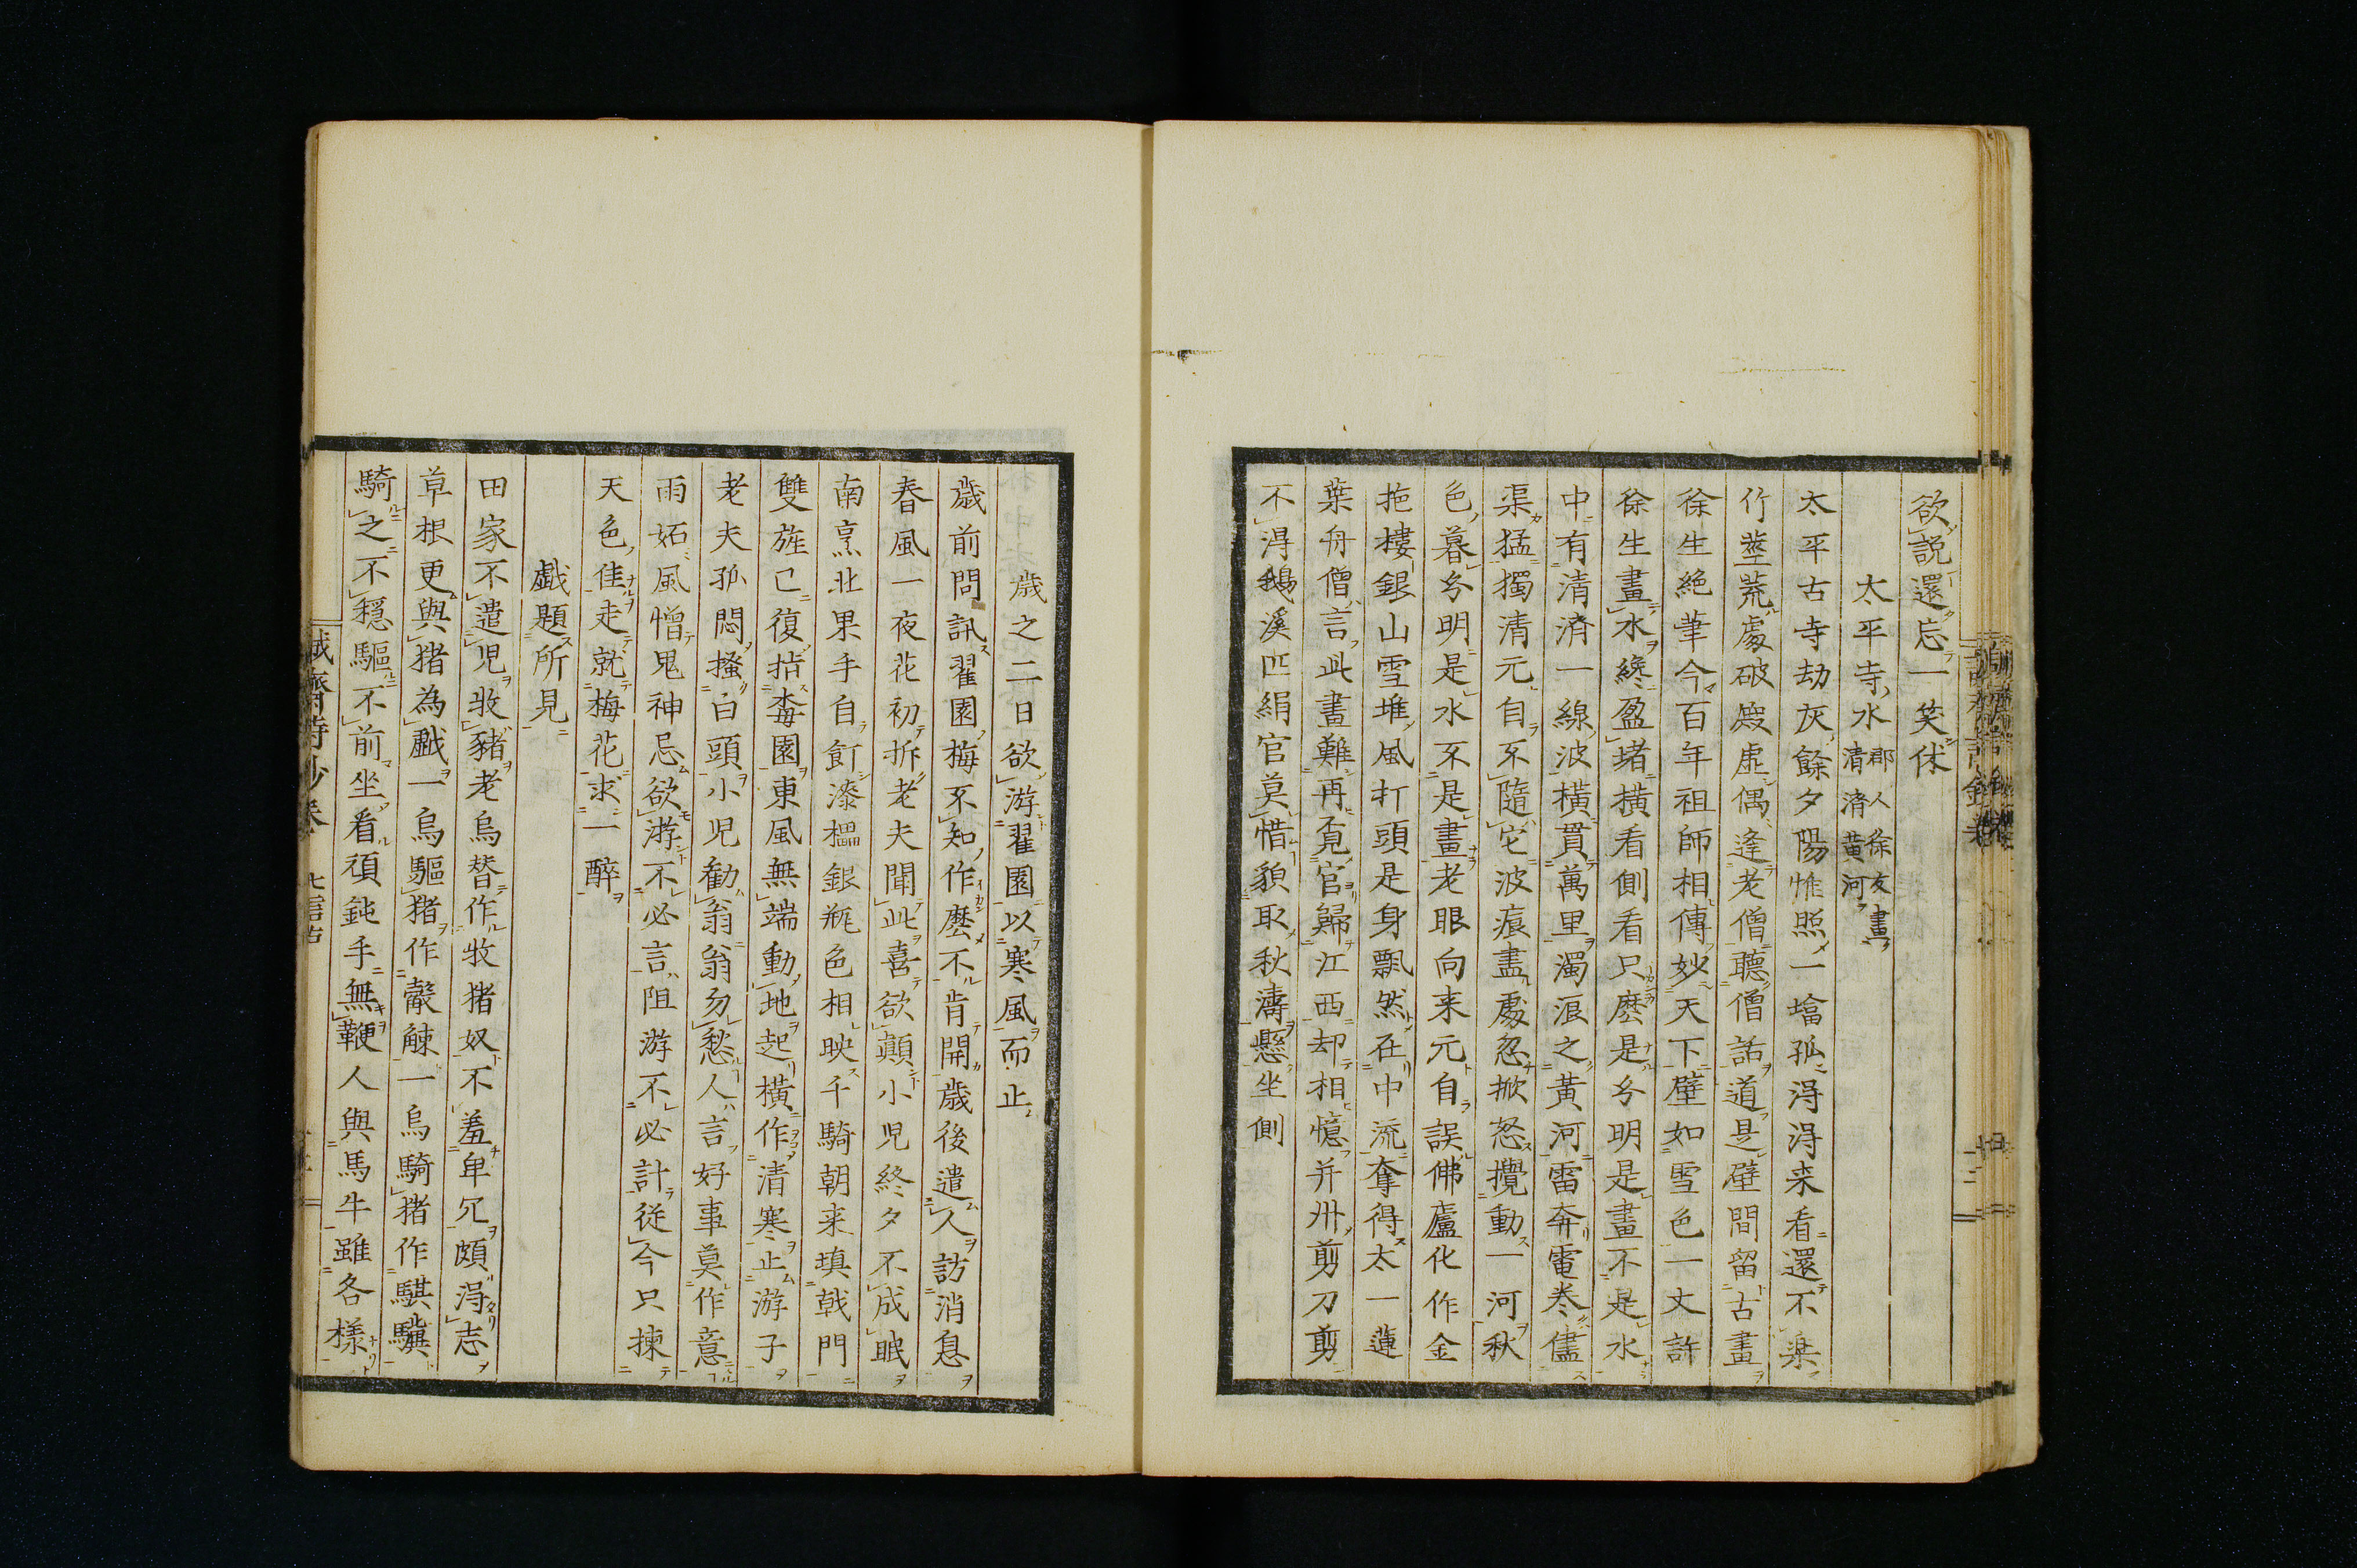 欲説還忘一笑休
太平寺水郡人徐友畫清濟黃河
太平古寺劫灰餘夕陽惟照一㙮孤淂淂来看還不楽
竹莖荒處破殿虛偶逢老僧聽僧話道是壁間留古畫
徐生絶筆今百年祖師相傳妙天下壁如雪色一丈許
徐生畫水終盈堵橫看側看只麽是分明是畫不是水
中有清濟一線波橫貫萬里濁浪之黃河雷奔電卷儘
渠猛獨清元自不隨它波痕盡處忽掀怒攪動一河秋
色暮分明是水不是畫老眼向来元自誤佛廬化作金
拖樓銀山雪堆風打頭是身飄然在中流奪得太一蓮
葉舟僧言此畫難再覔官歸江西却相憶并州剪刀剪
不淂鵝溪匹絹官莫惜貌取秋濤懸坐側
歲之二日欲游翟園以寒風而止
歲前問訊翟園梅不知作麽不肯開歲後遣人訪消息
春風一夜花初拆老夫聞此喜欲顛小児終夕不成眠
南烹北果手自飣漆櫑銀瓶色相映千騎朝来塡戟門
雙旌已復指𣫭園東風無端動地起橫作清寒止游子
老夫孤悶搔白頭小児勸翁翁勿愁人言好事莫作意
雨妬風憎鬼神忌欲游不必言阻游不必計從今只揀
天色佳走就梅花求一醉
戯題所見
田家不遣児牧豬老烏替作牧猪奴不羞卑冗頗淂志
草根更與猪為戯一烏驅猪作觳觫一烏騎猪作騏驥
騎之不穏驅不前坐看頑鈍手無鞭人與馬牛雖各樣
誠齋詩抄卷